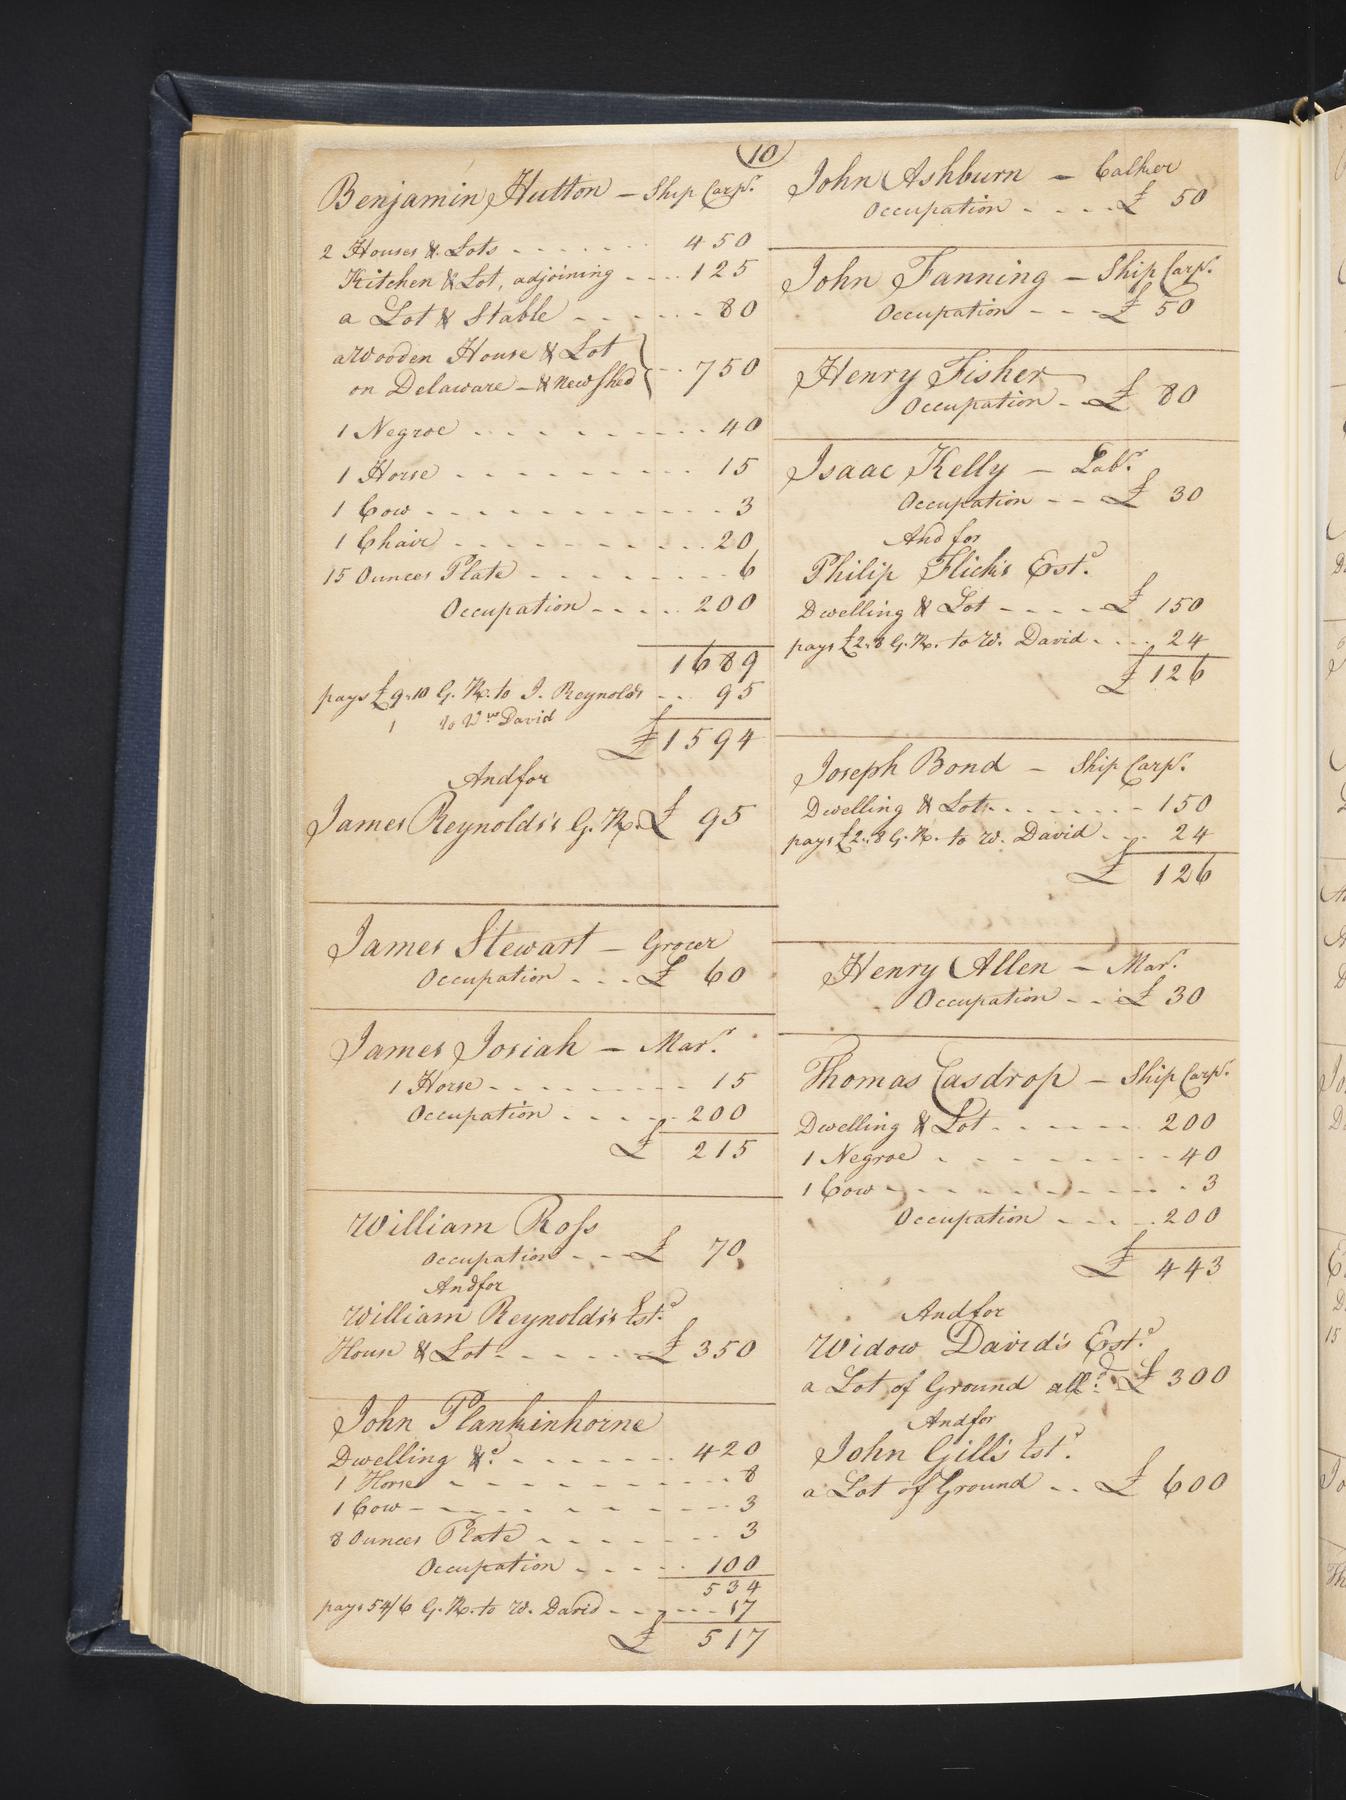 10
Benjamin Hutton — Ship Carpr.
2 Houses & Lots - - - - - - 450
Kitchen & Lot, adjoining - - - 125
a Lot & Stable - - - - - - 80
a Wooden House & Lot
on Delaware — & new shed } - - 750
1 Negroe - - - - - - - - 40
1 Horse - - - - - - - - 15
1 Cow - - - - - - - - - 3
1 Chair - - - - - - - - 20
15 Ounces Plate - - - - - - 6
Occupation - - - - 200
1689
pays £9.10 G. R. to J. Reynolds - - 95
1 to Wm David
£ 1594
And for
James Reynolds's G. R. £ 95
James Stewart — Grocer
Occupation - - - £ 60
James Josiah — Marr.
1 Horse - - - - - - - 15
Occupation - - - - - 200
£ 215
William Ross
Occupation - - - £ 70
And for
William Reynolds's Estd.
House & Lot - - - - - £ 350
John Plankinhorne
Dwelling &c - - - - - - 420
1 Horse - - - - - - - - 8
1 Cow - - - - - - - - 3
8 Ounces Plate - - - - - - 3
Occupation - - - - 100
534
pays 54/6 G. R. to W. David - - - - 17
£ 517
John Ashburn — Calker
Occupation - - - - £ 50
John Fanning — Ship Carpr.
Occupation - - - £ 50
Henry Fisher
Occupation - - £ 80
Isaac Kelly — Labr.
Occupation - - £ 30
And for
Philip Flick's Estd.
Dwelling & Lot - - - - £ 150
pays £2.8 G. R. to W. David - - - 24
£ 126
Joseph Bond — Ship Carpr.
Dwelling & Lots - - - - - - 150
pays £2.8 G. R. to W. David - - - 24
£ 126
Henry Allen — Marr.
Occupation - - £ 30
Thomas Casdrop — Ship Carpr.
Dwelling & Lot - - - - - 200
1 Negroe - - - - - - - 40
1 Cow - - - - - - - - - 3
Occupation - - - - 200
£ 443
And for
Widow David's Estd.
a Lot of Ground alld. £ 300
And for
John Gill's Estd.
a Lot of Ground - - £ 600